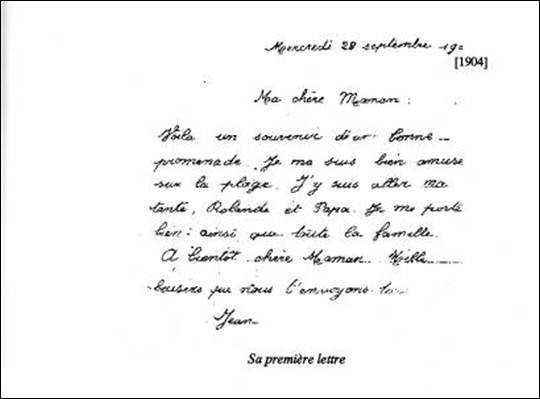 Mercredi 28 septembre 190
[1904]
Ma chère Maman :
Voila un souvenir d'un bonne
promenade. Je me suis bien amuse
sur la plage. J'y suis aller ma
tante, Rolande et Papa. Je me porte
bien : ainsi que toute la famelle.
A bientot chère Maman. Mille
baisers que nous t'envoyons
Jean
Sa première lettre